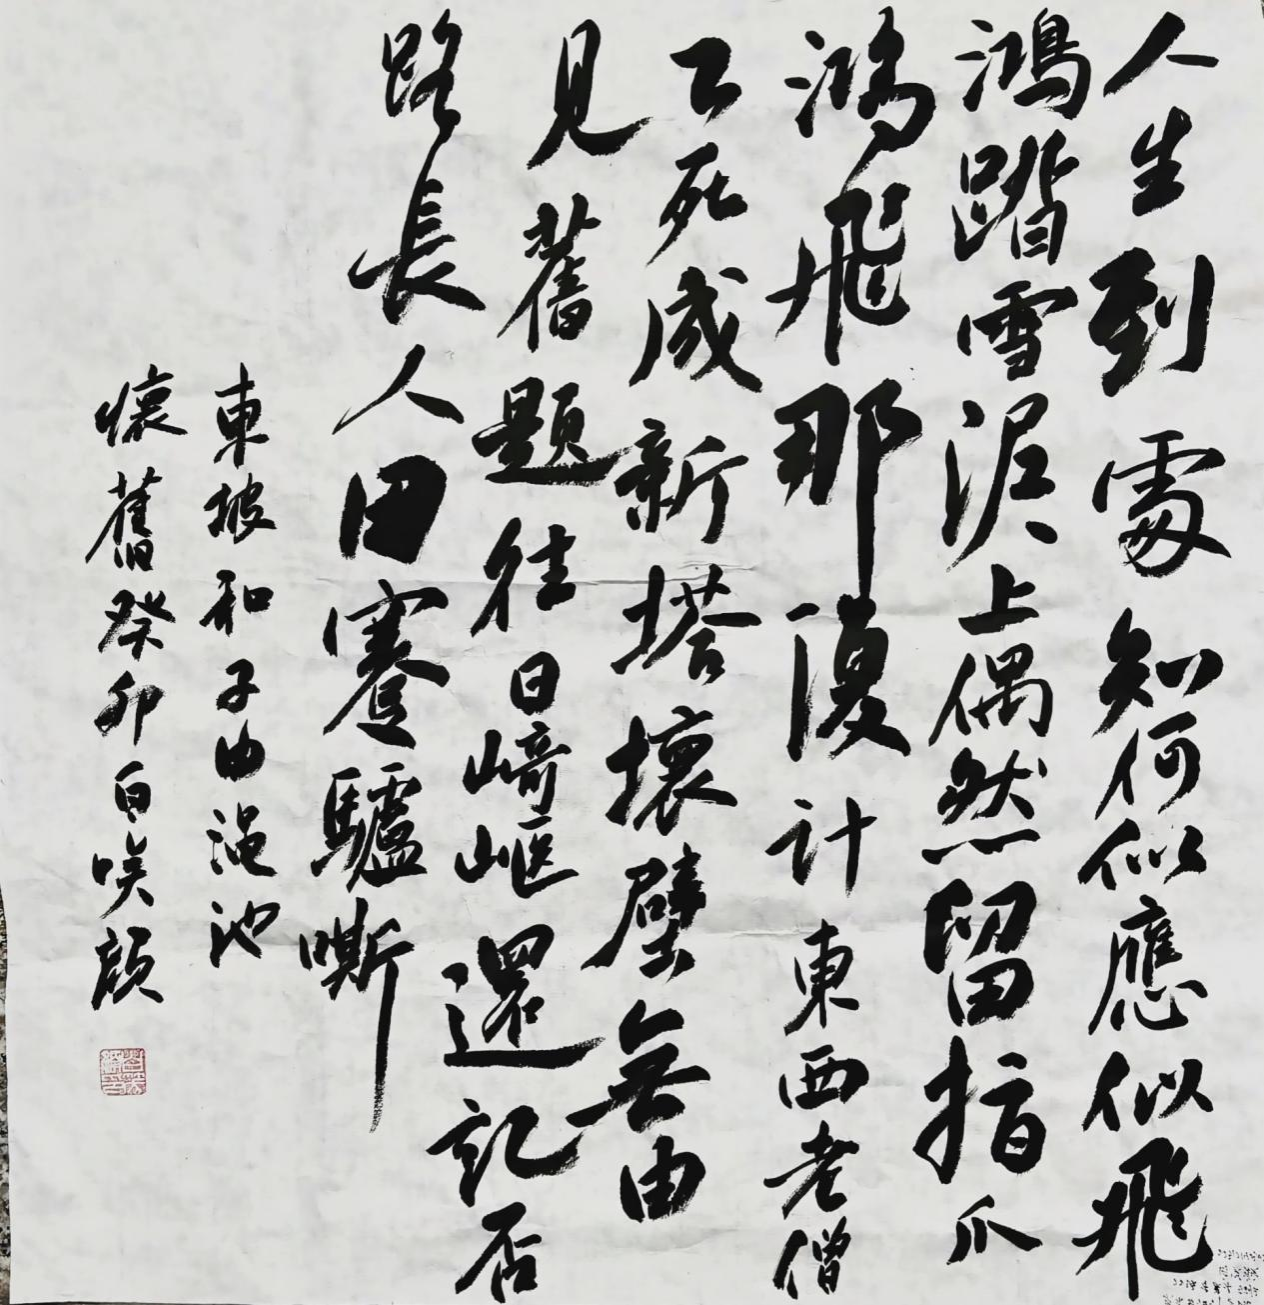 人生到處知何似應似飛
鴻踏雪泥上偶然留指爪
鴻飛那復計東西老僧
已死成新塔壞壁無由
見舊題往日崎嶇還記否
路長人困蹇驢嘶
東坡和子由澠池
懷舊癸卯白笑顏